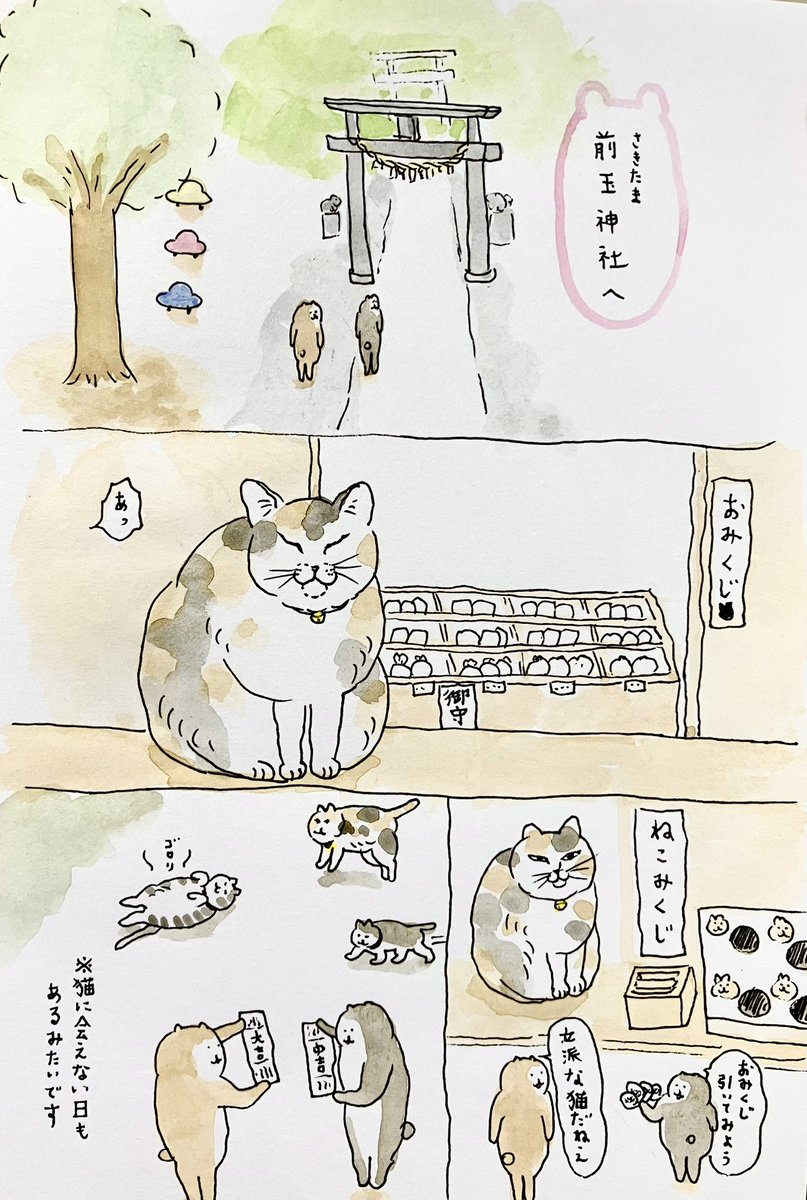 さきたま
前玉神社へ
あっ
おみくじ
御守
ねこみくじ
立派な猫だねぇ
おみくじ
引いてみよう
ゴロリ
大吉
中吉
※猫に会えない日も
あるみたいです